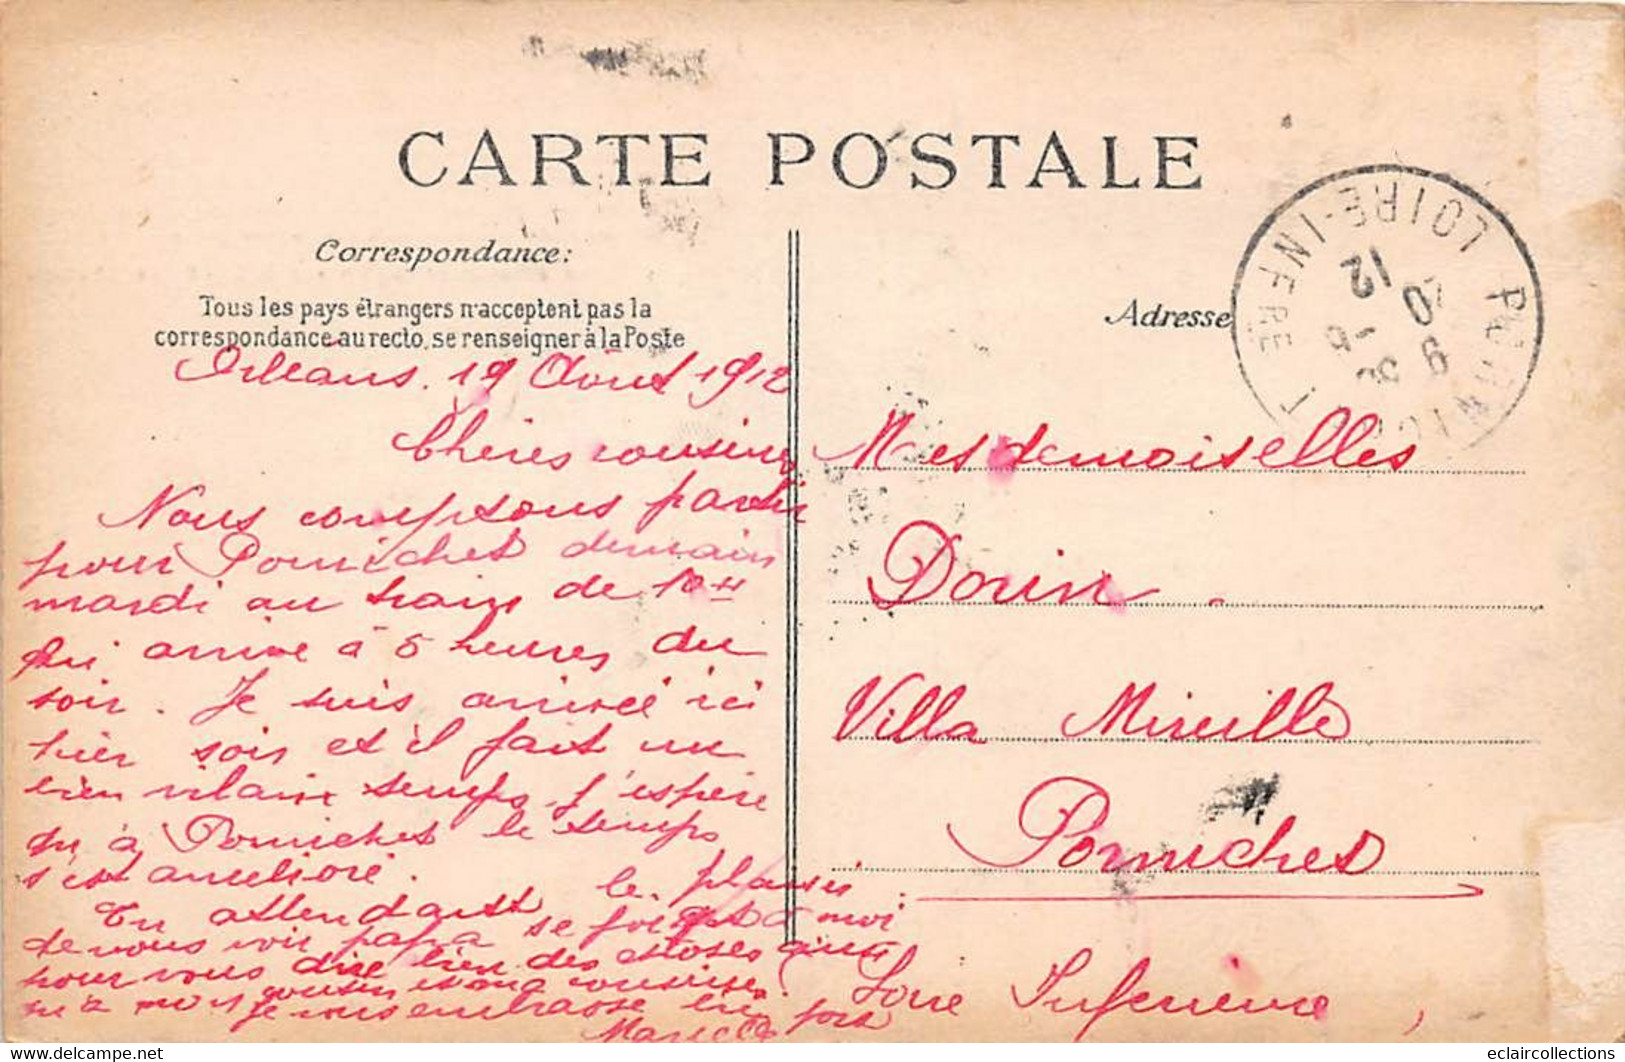 CARTE POSTALE
Correspondance:
Tous les pays étrangers n'acceptent pas la
correspondance au recto, se renseigner à la Poste
Orléans. 19 Août 1912
Chères cousines
Nous comptons partir
pour Pornichet demain
mardi au train de 10 H
qui arrive à 5 heures du
soir. Je suis arrivée ici
hier soir et il fait un
bien vilain temps j'espère
qu'à Pornichet le temps
s'est amélioré.
En attendant le plaisir
de vous voir papa se joint à moi
pour vous dire bien des choses ainsi
qu'à mon cousin et ma cousine.
Je vous embrasse bien fort
Marcelle
Adresse
PORNICHET
LOIRE-INFRE
12
Mesdemoiselles
Dorin.
Villa Mireille
Pornichet
Loire Inférieure
eclaircollections